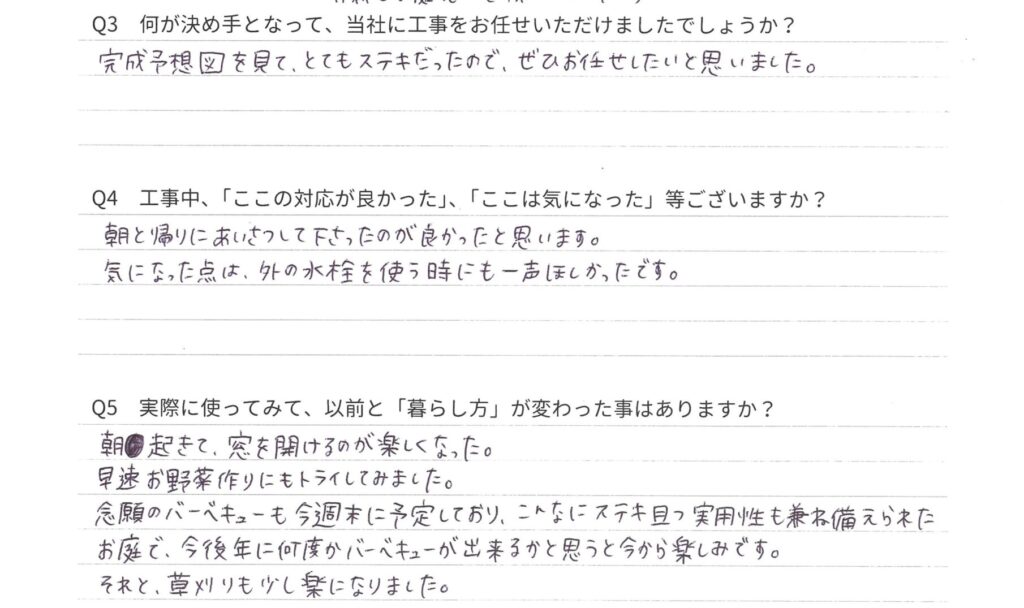 Q3 何が決め手となって、当社に工事をお任せいただけましたでしょうか?
完成予想図を見て、とてもステキだったので、ぜひお任せしたいと思いました。
Q4 工事中、「ここの対応が良かった」、「ここは気になった」等ございますか?
朝と帰りにあいさつして下さったのが良かったと思います。
気になった点は、外の水栓を使う時にも一声ほしかったです。
Q5 実際に使ってみて、以前と「暮らし方」が変わった事はありますか?
朝起きて、窓を開けるのが楽しくなった。
早速お野菜作りにもトライしてみました。
念願のバーベキューも今週末に予定しており、こんなにステキ且つ実用性も兼ね備えられた
お庭で、今後年に何度かバーベキューが出来るかと思うと今から楽しみです。
それと、草刈りも少し楽になりました。